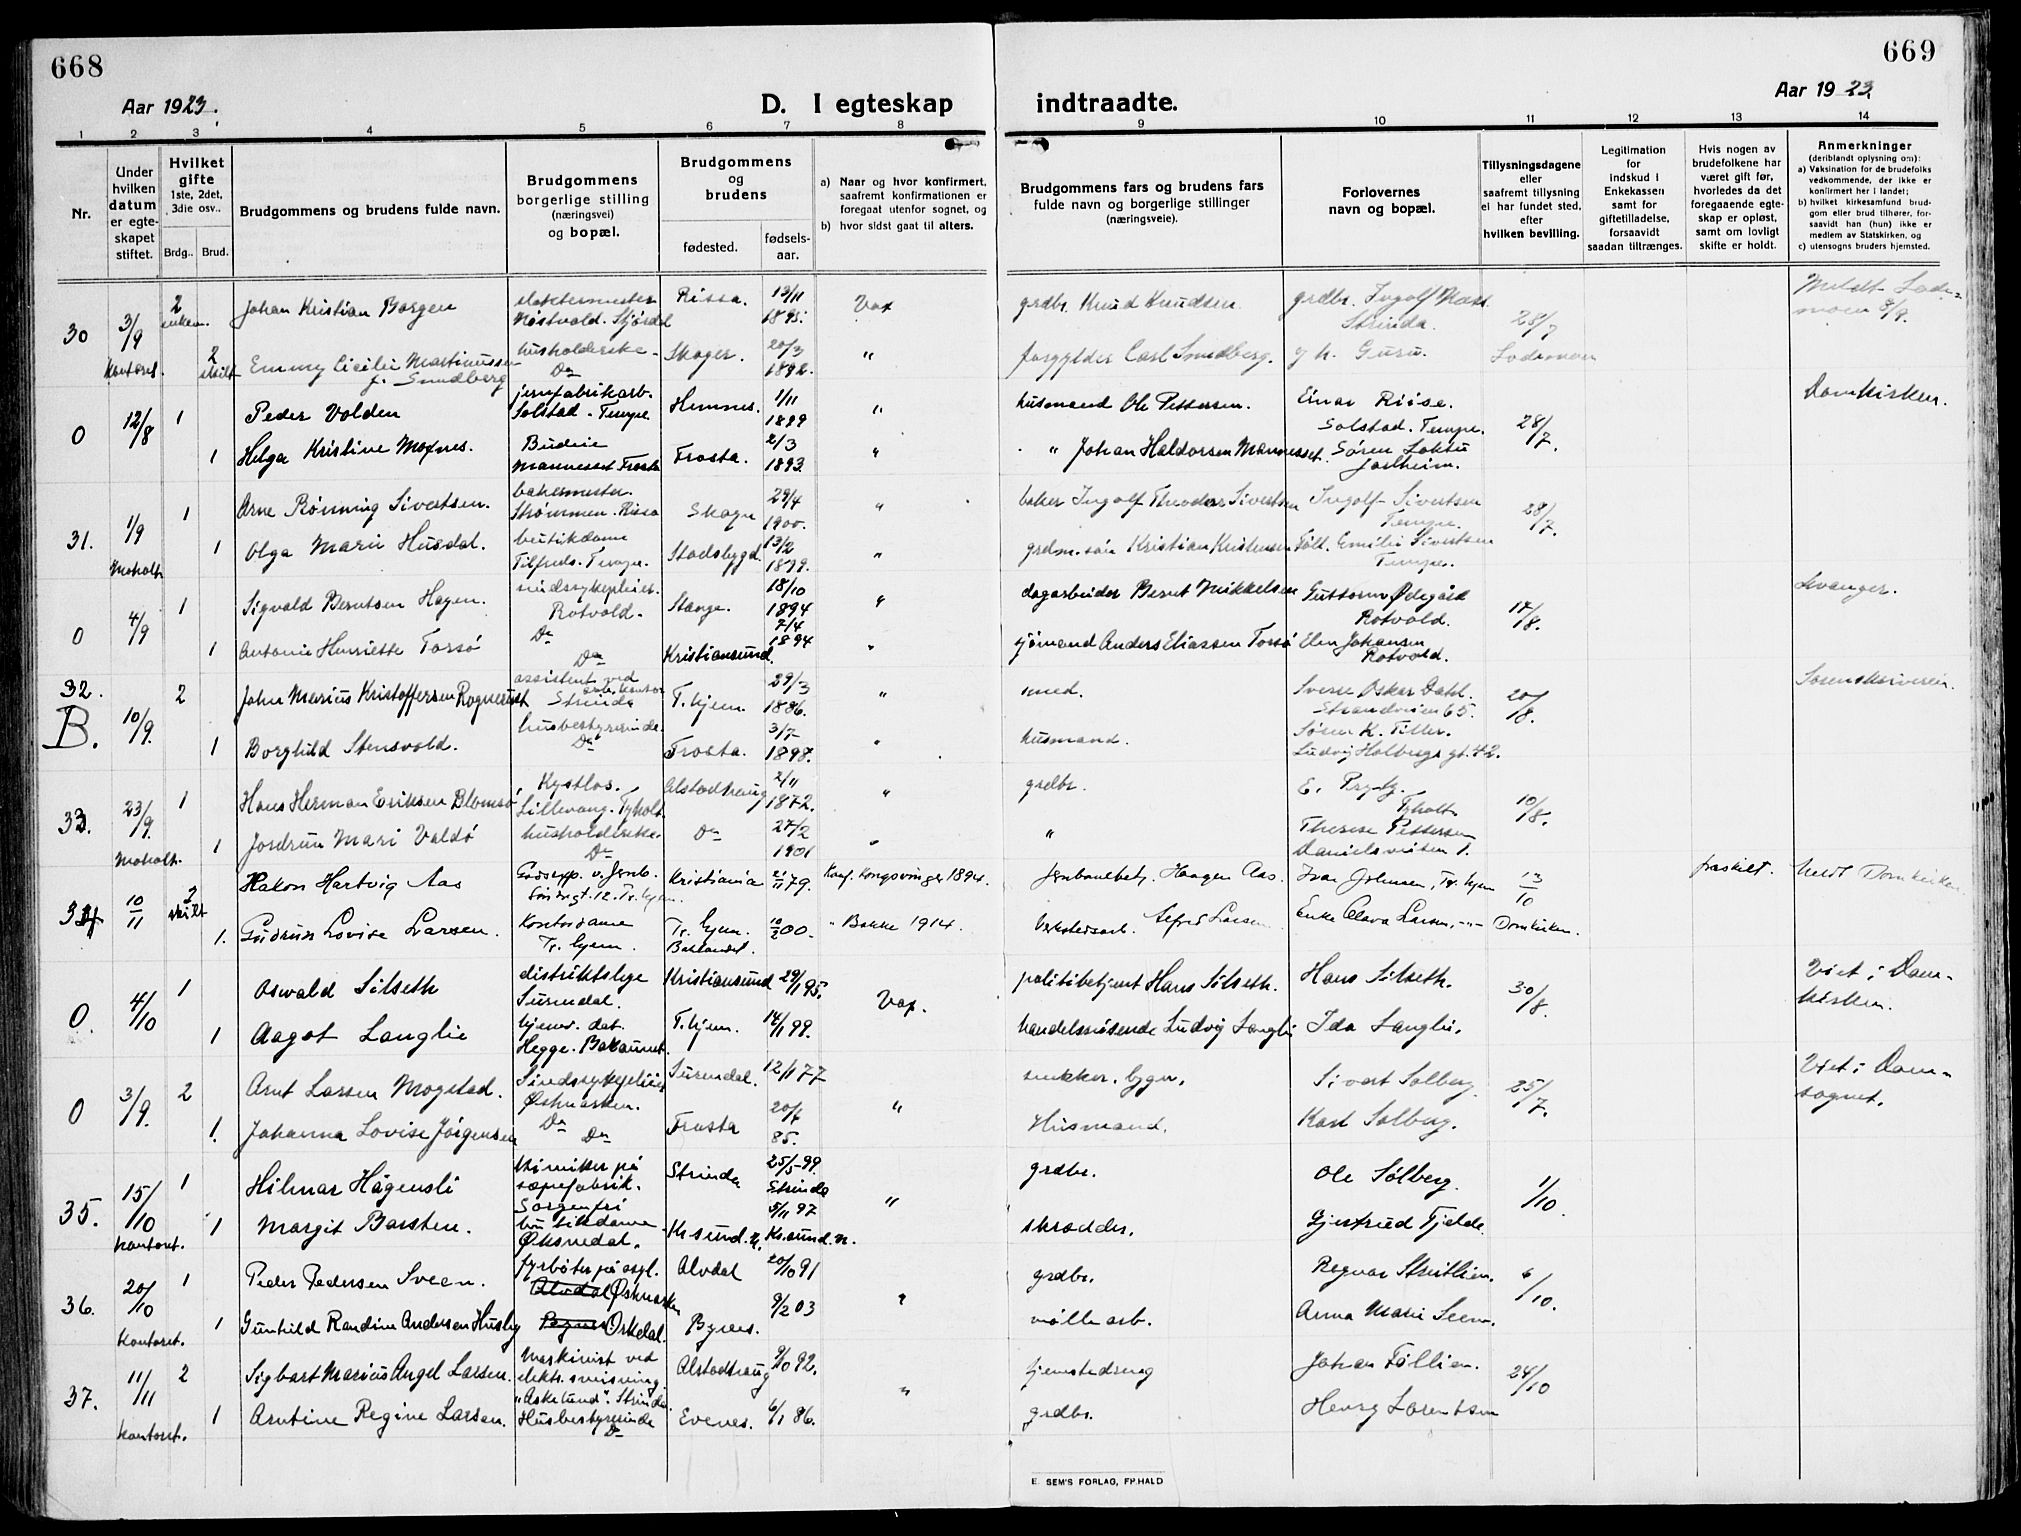 668
669
Aar 1923.
D. I egteskap indtraadte.
Aar 1923
1 2 3 4 5 6 7 8 9 10 11 12 13 14
Nr.
Under hvilken datum er egteskapet stiftet.
Hvilket gifte 1ste, 2det, 3die osv..
Brdg.. Brud.
Brudgommens og brudens fulde navn.
Brudgommens borgerlige stilling (næringsvei) og bopæl.
Brudgommens og brudens
fødested. fødselsaar.
a) Naar og hvor konfirmert, saafremt konfirmationen er foregaat utenfor sognet, og
b) hvor sidst gaat til alters.
Brudgommens fars og brudens fars fulde navn og borgerlige stillinger (næringsveie).
Forlovernes navn og bopæl.
Tillysningsdagene eller saafremt tillysning ei har fundet sted, efter hvilken bevilling.
Legitimation for indskud i Enkekassen samt for giftetilladelse, forsaavidt saadan tiltrænges.
Hvis nogen av brudefolkene har været gift før, hvorledes da det foregaaende egteskap er opløst, samt om lovligt skifte er holdt.
Anmerkninger (deriblandt oplysning om):
a) Vaksination for de brudefolks vedkommende, der ikke er konfirmert her i landet;
b) hvilket kirkesamfund brudgom eller brud tilhører, forsaavidt han (hun) ikke er medlem av Statskirken, og
c) utensogns bruders hjemsted.
30 3/9 2 enkem. Johan Kristian Borgen slaktermester Stjørdal Rissa. 13/11 1895. Vax grdbr. Knud Knudsen. grdbr. Ingolf Næss Strinda. 28/7
kontoret. 2 skilt Emmy Cicilie Martinussen f. Sundberg husholderske Do Skoger. 20/3 1892. " forgylder Carl Sundberg. Lademoen
0 12/8 1 Peder Volden jernfabrikarb. Solstad. Tempe Hemnes. 1/11 1899 " husmand Ole Pettersen. Einar Riise. Solstad. Tempe. 28/7. Domkirken.
1 Helga Kristine Moxnes. Budeie Frosta Frosta. 2/3 1893. " " Johan Haldorsen Mannesset. Søren Loktu
31. 1/9 1 Arne Rönning Sivertsen. bakermester. Strømmen. Rissa Skogn 29/4 1900. " baker Ingolf Theodor Sivertsen Ingolf Sivertsen Tempe. 28/7.
Moholt 1 Olga Marie Husdal. butikdame Tempe. Stadsbygd. 13/2 1899. " Kristian Kristensen Emilie Sivertsen Tempe.
0 4/9 1 Sigvald Berntsen Hagen. sindssykepleier. Rotvold. Stange. 18/10 1894 " dagarbeider Bernt Mikkelsen Guttorm Ødegård Rotvold. 17/8. Levanger.
1 Antonie Henriette Torsø Do Do Kristiansund. 7/4 1894 " sjömand Anders Eliassen Torsø Elen Johansen Rotvold.
32. B. 10/9. 2 John Marius Kristoffersen Rognerudt assistent ved Strinda T.hjem. 29/3 1886. " smed. Sverre Oskar Dahl. Strandveien 65. 20/8. Sorenskriveren.
1 Borghild Stensvold. husbestyrerinde. Do Frosta. 3/7 1898. " husmand. Søren K. Tiller. Ludvig Holbergs gt. 42.
33. 23/9. 1 Hans Herman Eriksen Blomsø Kystlos. Lillevang. Tyholt Alstadhaug 2/11 1872. " grdbr. Tyholt 10/8.
Moholt. 1 Jordrun Mari Valdö husholderske. Do Do 27/2 1901 " " Therese Pettersen Danielsveiten 1.
34 10/11 2 skilt Håkon Hartvig Aas Godsexp. v. Jernb. Tr.hjem. Kristiania 2/11 79. Konf. Kongsvinger 1894. Jernbanebetj. Haagen Aas. Ivar Johnsen, Tr.hjem 13/10 fraskilt. Meldt Domkirken.
1. Gudrun Lovise Larsen. Kontordame Tr.hjem. Tr.hjem. Baklandet. 10/2 00. " Bakke 1914. Verkstedsarb. Alfred Larsen. Enke Clara Larsen, -"- Domkirken.
0. 4/10 1 Oswald Silseth distriktslege Surendal. Kristiansund 29/1 95. Vax. politibetjent Hans Silseth. Hans Silseth. 30/8. Viet i Domkirken.
1 Aagot Langlie hjemv. dat. Hegge. Bakaunet. T.hjem. 14/1 99. handelsreisende Ludvig Langlie Ida Langlie.
0 3/9. 2 Arnt Larsen Mogstad. Sindssykepleier Østmarken. Surendal. 12/11 77 " snekker, bygm. Sivert Solberg. 25/7. Viet i Domsognet.
1. Johanna Lovise Jørgensen Do Do Frosta 20/7 85. Husmand. Karl Solberg.
35. 15/10 1 Hilmar Hågensli kemiker på sæpefabrik. Sorgenfri Strinda 25/5-99. Strinda " grdbr. Ole Sølberg. 1/10.
kontoret. 1 Margit Barsten. butikdame Øksnedal. Kr.sund. N. 8/11 97 Kr.sund. N. skrædder. Gjertrud Fjelde.
36. 20/10 1 Peder Pedersen Sveen. fyrbøter på asyl. Alvdal Østmarken Alvdal 20/10 91 " grdbr. Ragnar Streitlien. 6/10.
kontoret. 1 Gunhild Randine Andersen Husby Orkdal. Bynes. 9/2 03 møllearb. Anna Marie Sveen.
37. 11/11 2 Sigbart Marius Angel Larsen. Maskinist ved elektr. sveisning "Askelund". Strinda Alstadhaug 9/10 92. " tjenestedreng Johan Føllien. 24/10
kontoret. 1 Arntine Regine Larsen. Husbestyrerinde Do Evenes. 6/1 86. grdbr. Henry Lorentsen
E. SEM'S FORLAG, FP.HALD